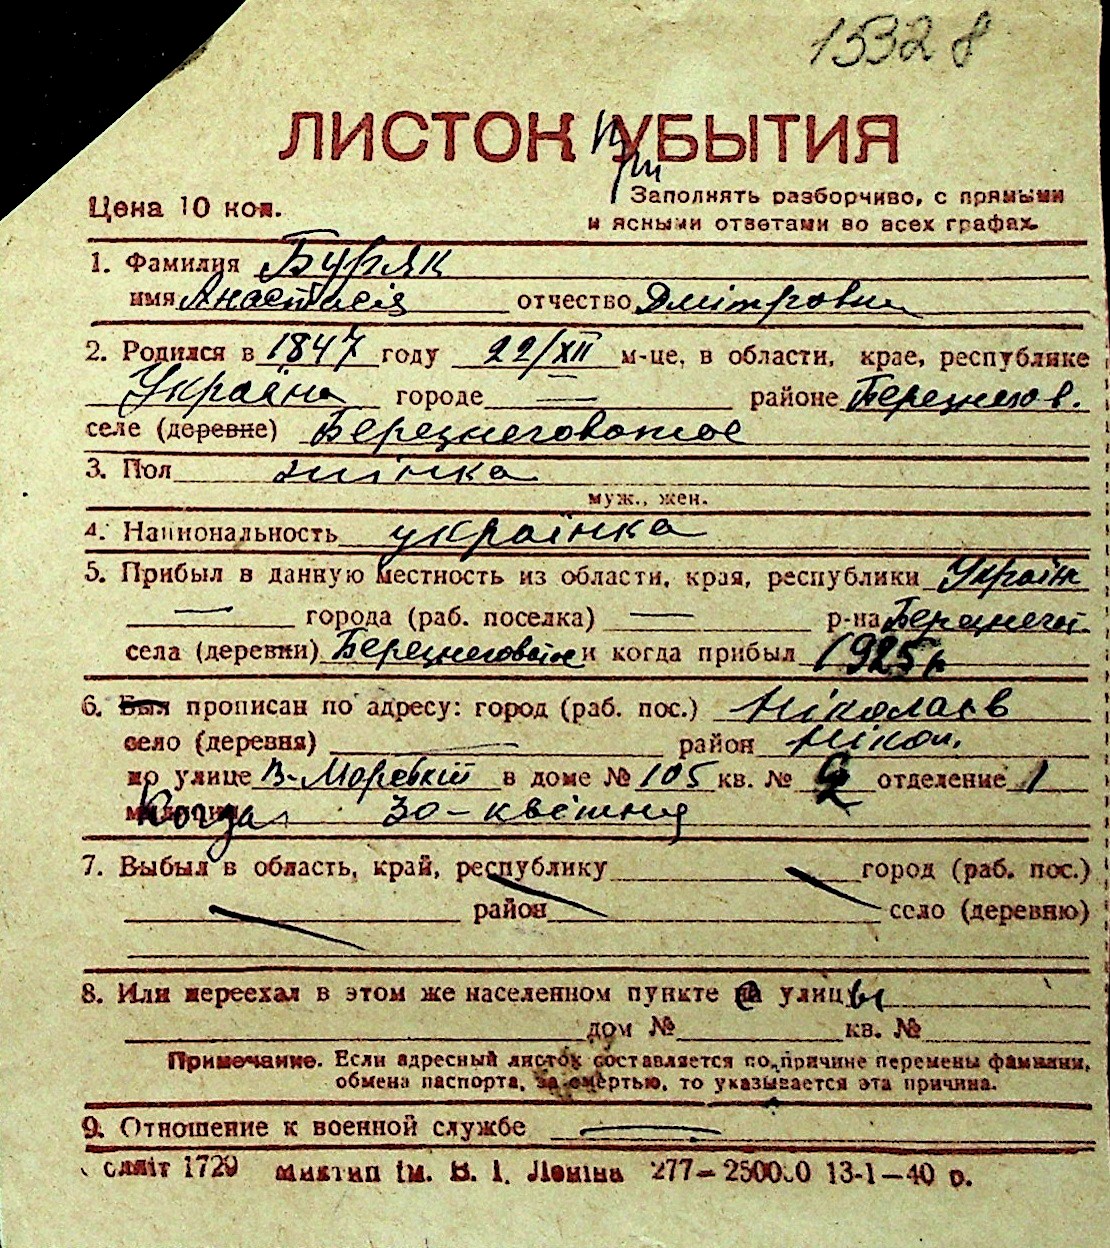 15328
ЛИСТОК УБЫТИЯ
При
Цена 10 коп.
Заполнять разборчиво, с прямыми
и ясными ответами во всех графах.
1. Фамилия Буряк
имя Анастасія отчество Дмітровна
2. Родился в 1847 году 22/XII м-це, в области, крае, республике
Україна городе — районе Березнегов.
селе (деревне) Березнеговатое
3. Пол жінка
муж., жен.
4. Национальность українка
5. Прибыл в данную местность из области, края, республики Україн
— города (раб. поселка) — р-на Березнег.
села (деревни) и когда прибыл 1925 р
6. Был прописан по адресу: город (раб. пос.) Ніколаєв
село (деревня) — район Нікол.
по улице В-Морській в доме № 105 кв. № 2 отделение 1
милиции Когда 30 - квітня
7. Выбыл в область, край, республику город (раб. пос.)
район село (деревню)
8. Или переехал в этом же населенном пункте с улицы
дом № кв. №
Примечание. Если адресный листок составляется по причине перемены фамилии,
обмена паспорта, за смертью, то указывается эта причина.
9. Отношение к военной службе —
1729 ім. В. І. Леніна 277—250000 13-1—40 р.